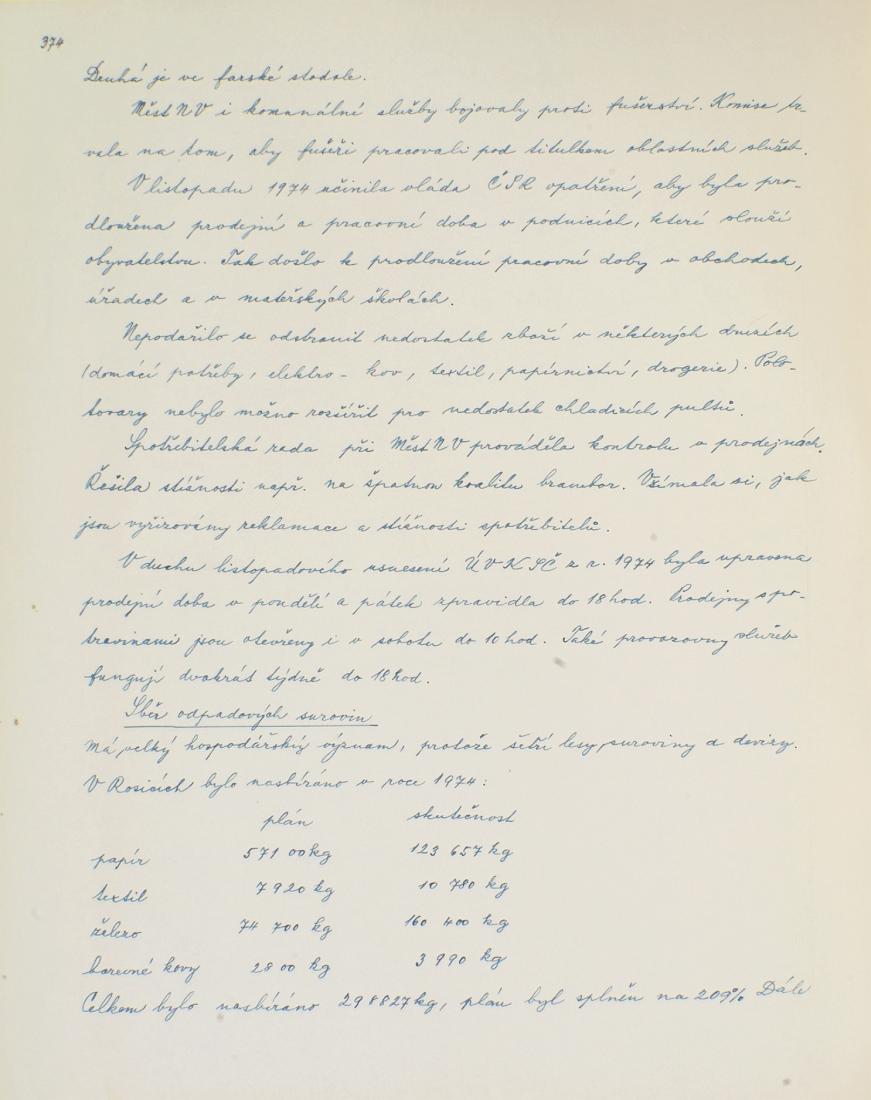 374
Druhá je ve farské stodole.
Měst NV i komunální služby bojovaly proti fušerství. Komise tr-
vala na tom, aby fušeři pracovali pod titulkem oblastních služeb.
V listopadu 1974 učinila vláda ČSR opatření, aby byla pro-
dloužena prodejní a pracovní doba v podnicích, které slouží
obyvatelstvu. Tak došlo k prodloužení pracovní doby v obchodech,
úřadech a v mateřských školách.
Nepodařilo se odstranit nedostatek zboží v některých druzích
(domácí potřeby, elektro-kov, textil, papírnictví, drogerie). Polo-
tovary nebylo možno rozšířit pro nedostatek chladících pultů.
Spotřebitelská rada při Měst NV prováděla kontrolu v prodejnách.
Řešila stížnosti např. na špatnou kvalitu brambor. Všímala si, jak
jsou vyřizovány reklamace a stížnosti spotřebitelů.
V duchu listopadového usnesení ÚV KSČ z r. 1974 byla upravena
prodejní doba v pondělí a pátek zpravidla do 18 hod. Prodejny s po-
travinami jsou otevřeny i v sobotu do 10 hod. Také provozovny služeb
fungují dvakrát týdně do 18 hod.
Sběr odpadových surovin
má velký hospodářský význam, protože šetří lesy, suroviny a devizy.
V Rosicích bylo nasbíráno v roce 1974:
plán skutečnost
papír 571 00 kg 123 657 kg
textil 7 920 kg 10 780 kg
železo 74 700 kg 160 400 kg
barevné kovy 28 00 kg 3 990 kg
Celkem bylo nasbíráno 298827 kg, plán byl splněn na 209% Dále